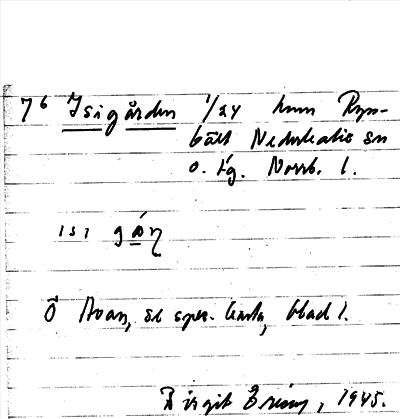 76 Isigården 1/24 hmn Ryss-
bält Nederkalix sn
o. tg. Norrb. l.
ısı gá̱ṇ
Ö Åvan, se spec. karta, blad 1.
Birgit 1945.